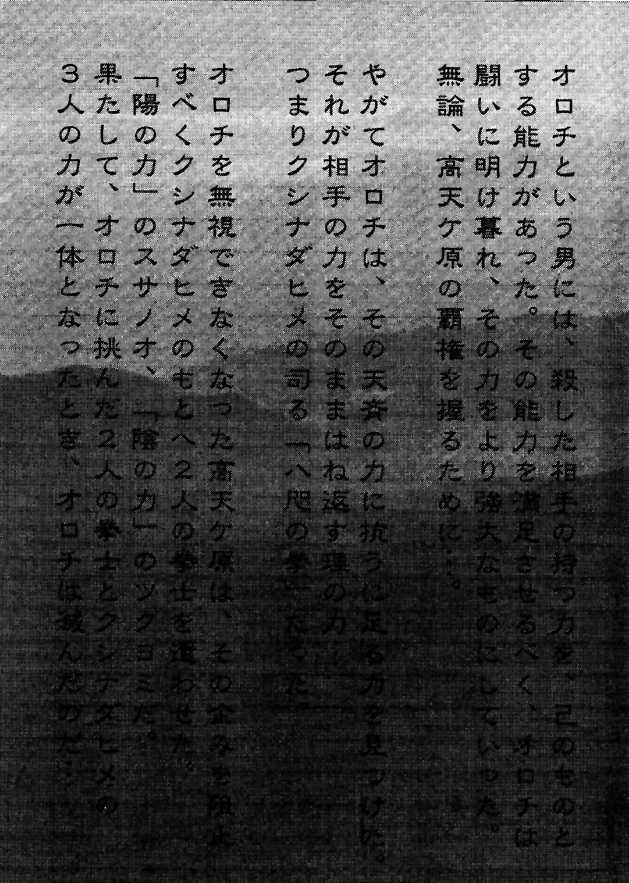 オロチという男には、殺した相手の持つ力を、己のものと
する能力があった。その能力を満足させるべく、オロチは
闘いに明け暮れ、その力をより強大なものにしていった。
無論、高天ケ原の覇権を握るために…。
やがてオロチは、その天賦の力に抗うに足る力を見つけた。
それが相手の力をそのままはね返す理の力…
つまりクシナダヒメの司る「八咫の拳」だった。
オロチを無視できなくなった高天ケ原は、その企みを阻止
すべくクシナダヒメのもとへ2人の拳士を遣わせた。
「陽の力」のスサノオ、「陰の力」のツクヨミだ。
果たして、オロチに挑んだ2人の拳士とクシナダヒメの
3人の力が一体となったとき、オロチは滅んだのだ…。